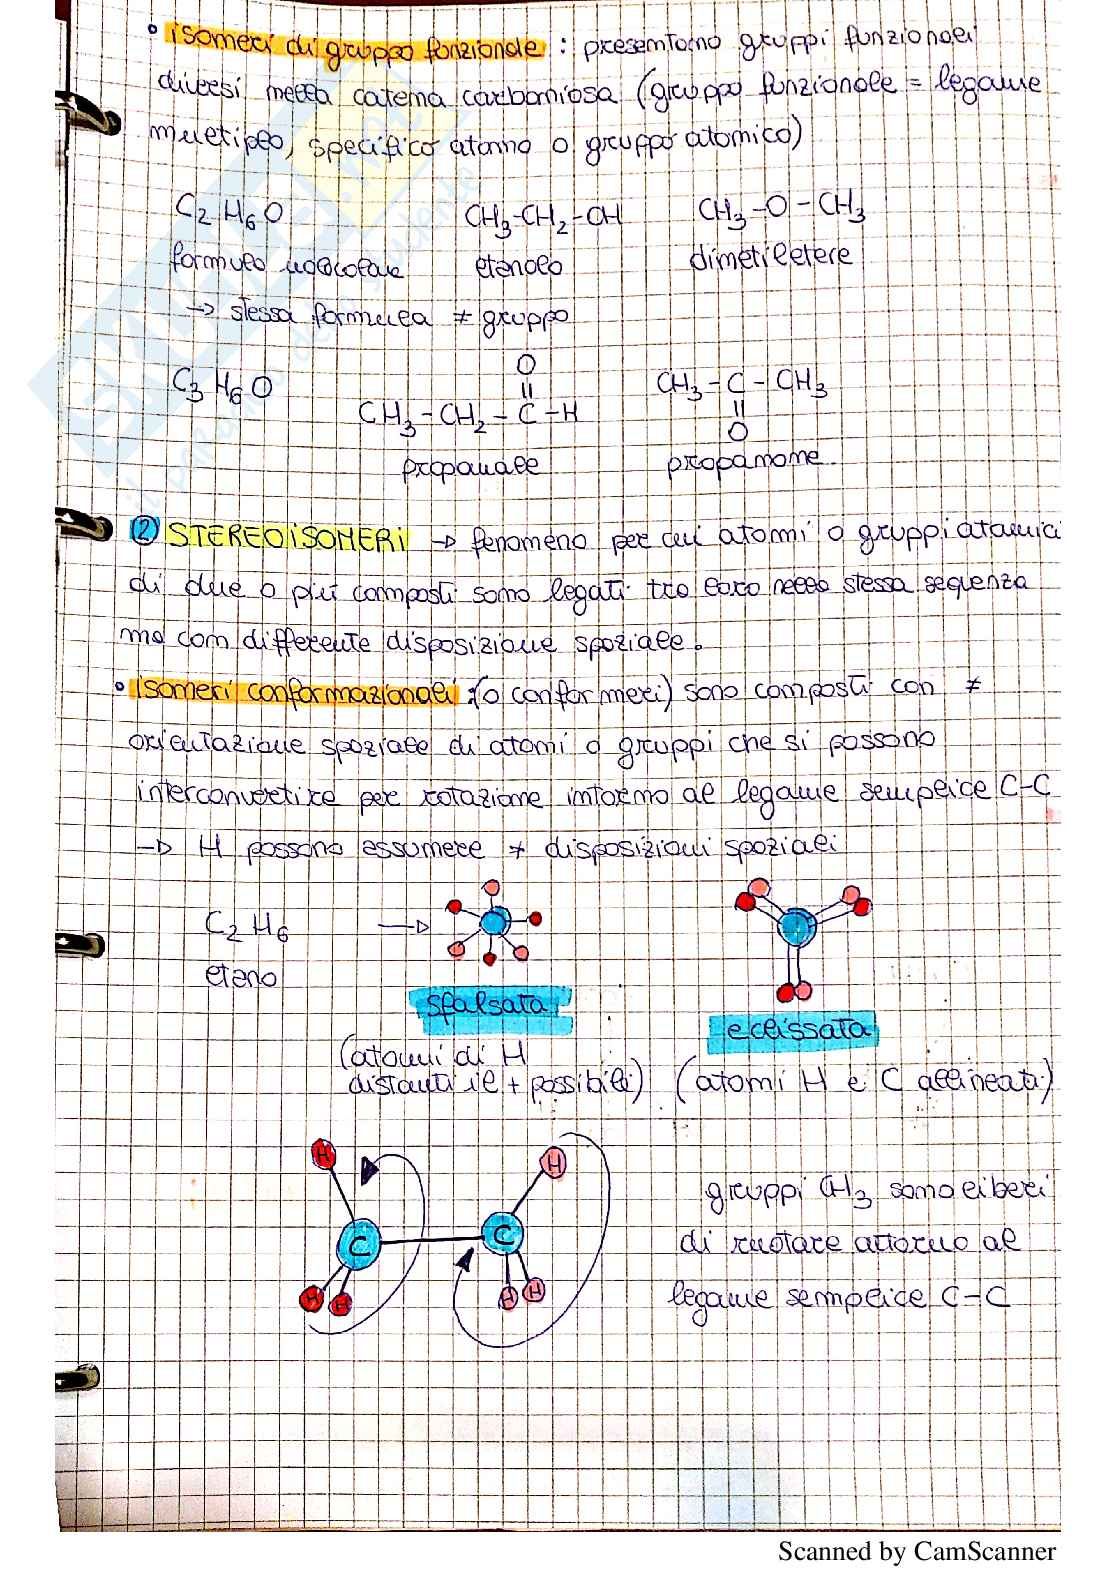 • isomeri di gruppo funzionale : presentano gruppi funzionali
diversi nella catena carboniosa (gruppo funzionale = legame
multiplo, specifico atomo o gruppo atomico)
C2H6O CH3-CH2-OH CH3-O-CH3
formula molecolare etanolo dimetiletere
→ stessa formula ≠ gruppo
O
C3H6O || CH3-C-CH3
CH3-CH2-C-H ||
O
propanale propanone
② STEREOISOMERI → fenomeno per cui atomi o gruppi atomici
di due o più composti sono legati tra loro nella stessa sequenza
ma con differente disposizione spaziale.
• isomeri conformazionali : (o conformeri) sono composti con ≠
orientazione spaziale di atomi o gruppi che si possono
interconvertire per rotazione intorno al legame semplice C-C
→ H possono assumere ≠ disposizioni spaziali
C2H6 →
etano
sfalsata eclissata
(atomi di H
distanti il + possibile) (atomi H e C allineati)
H H
gruppi CH3 sono liberi
C C di ruotare attorno al
H H H H legame semplice C-C
Scanned by CamScanner